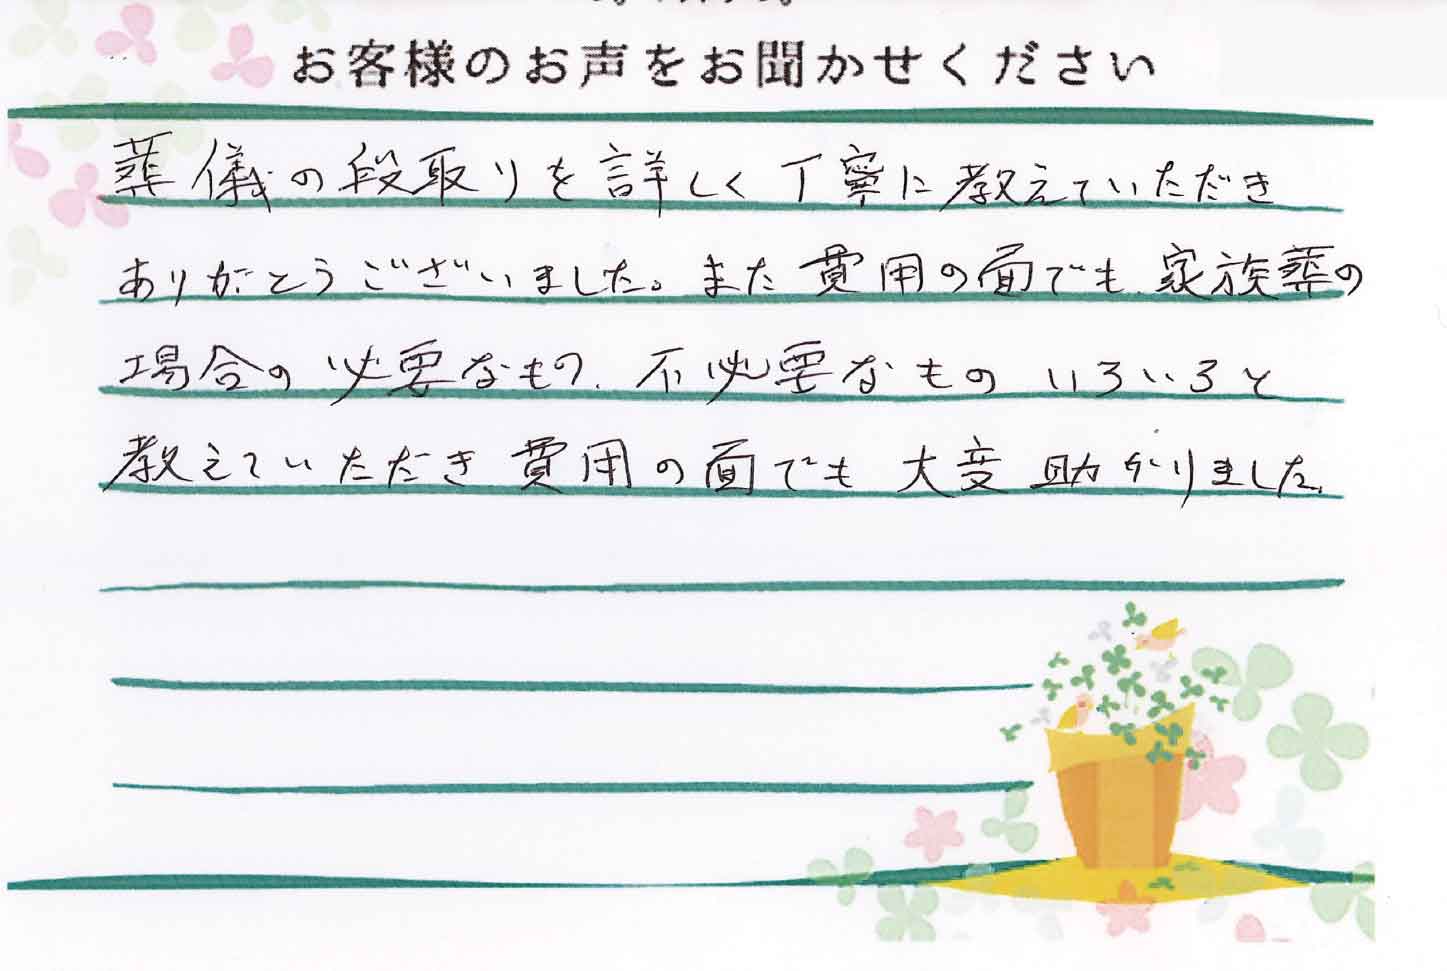 お客様のお声をお聞かせください
葬儀の段取りを詳しく丁寧に教えていただき
ありがとうございました。また費用の面でも、家族葬の
場合の必要なもの、不必要なものいろいろと
教えていただき費用の面でも大変助かりました。